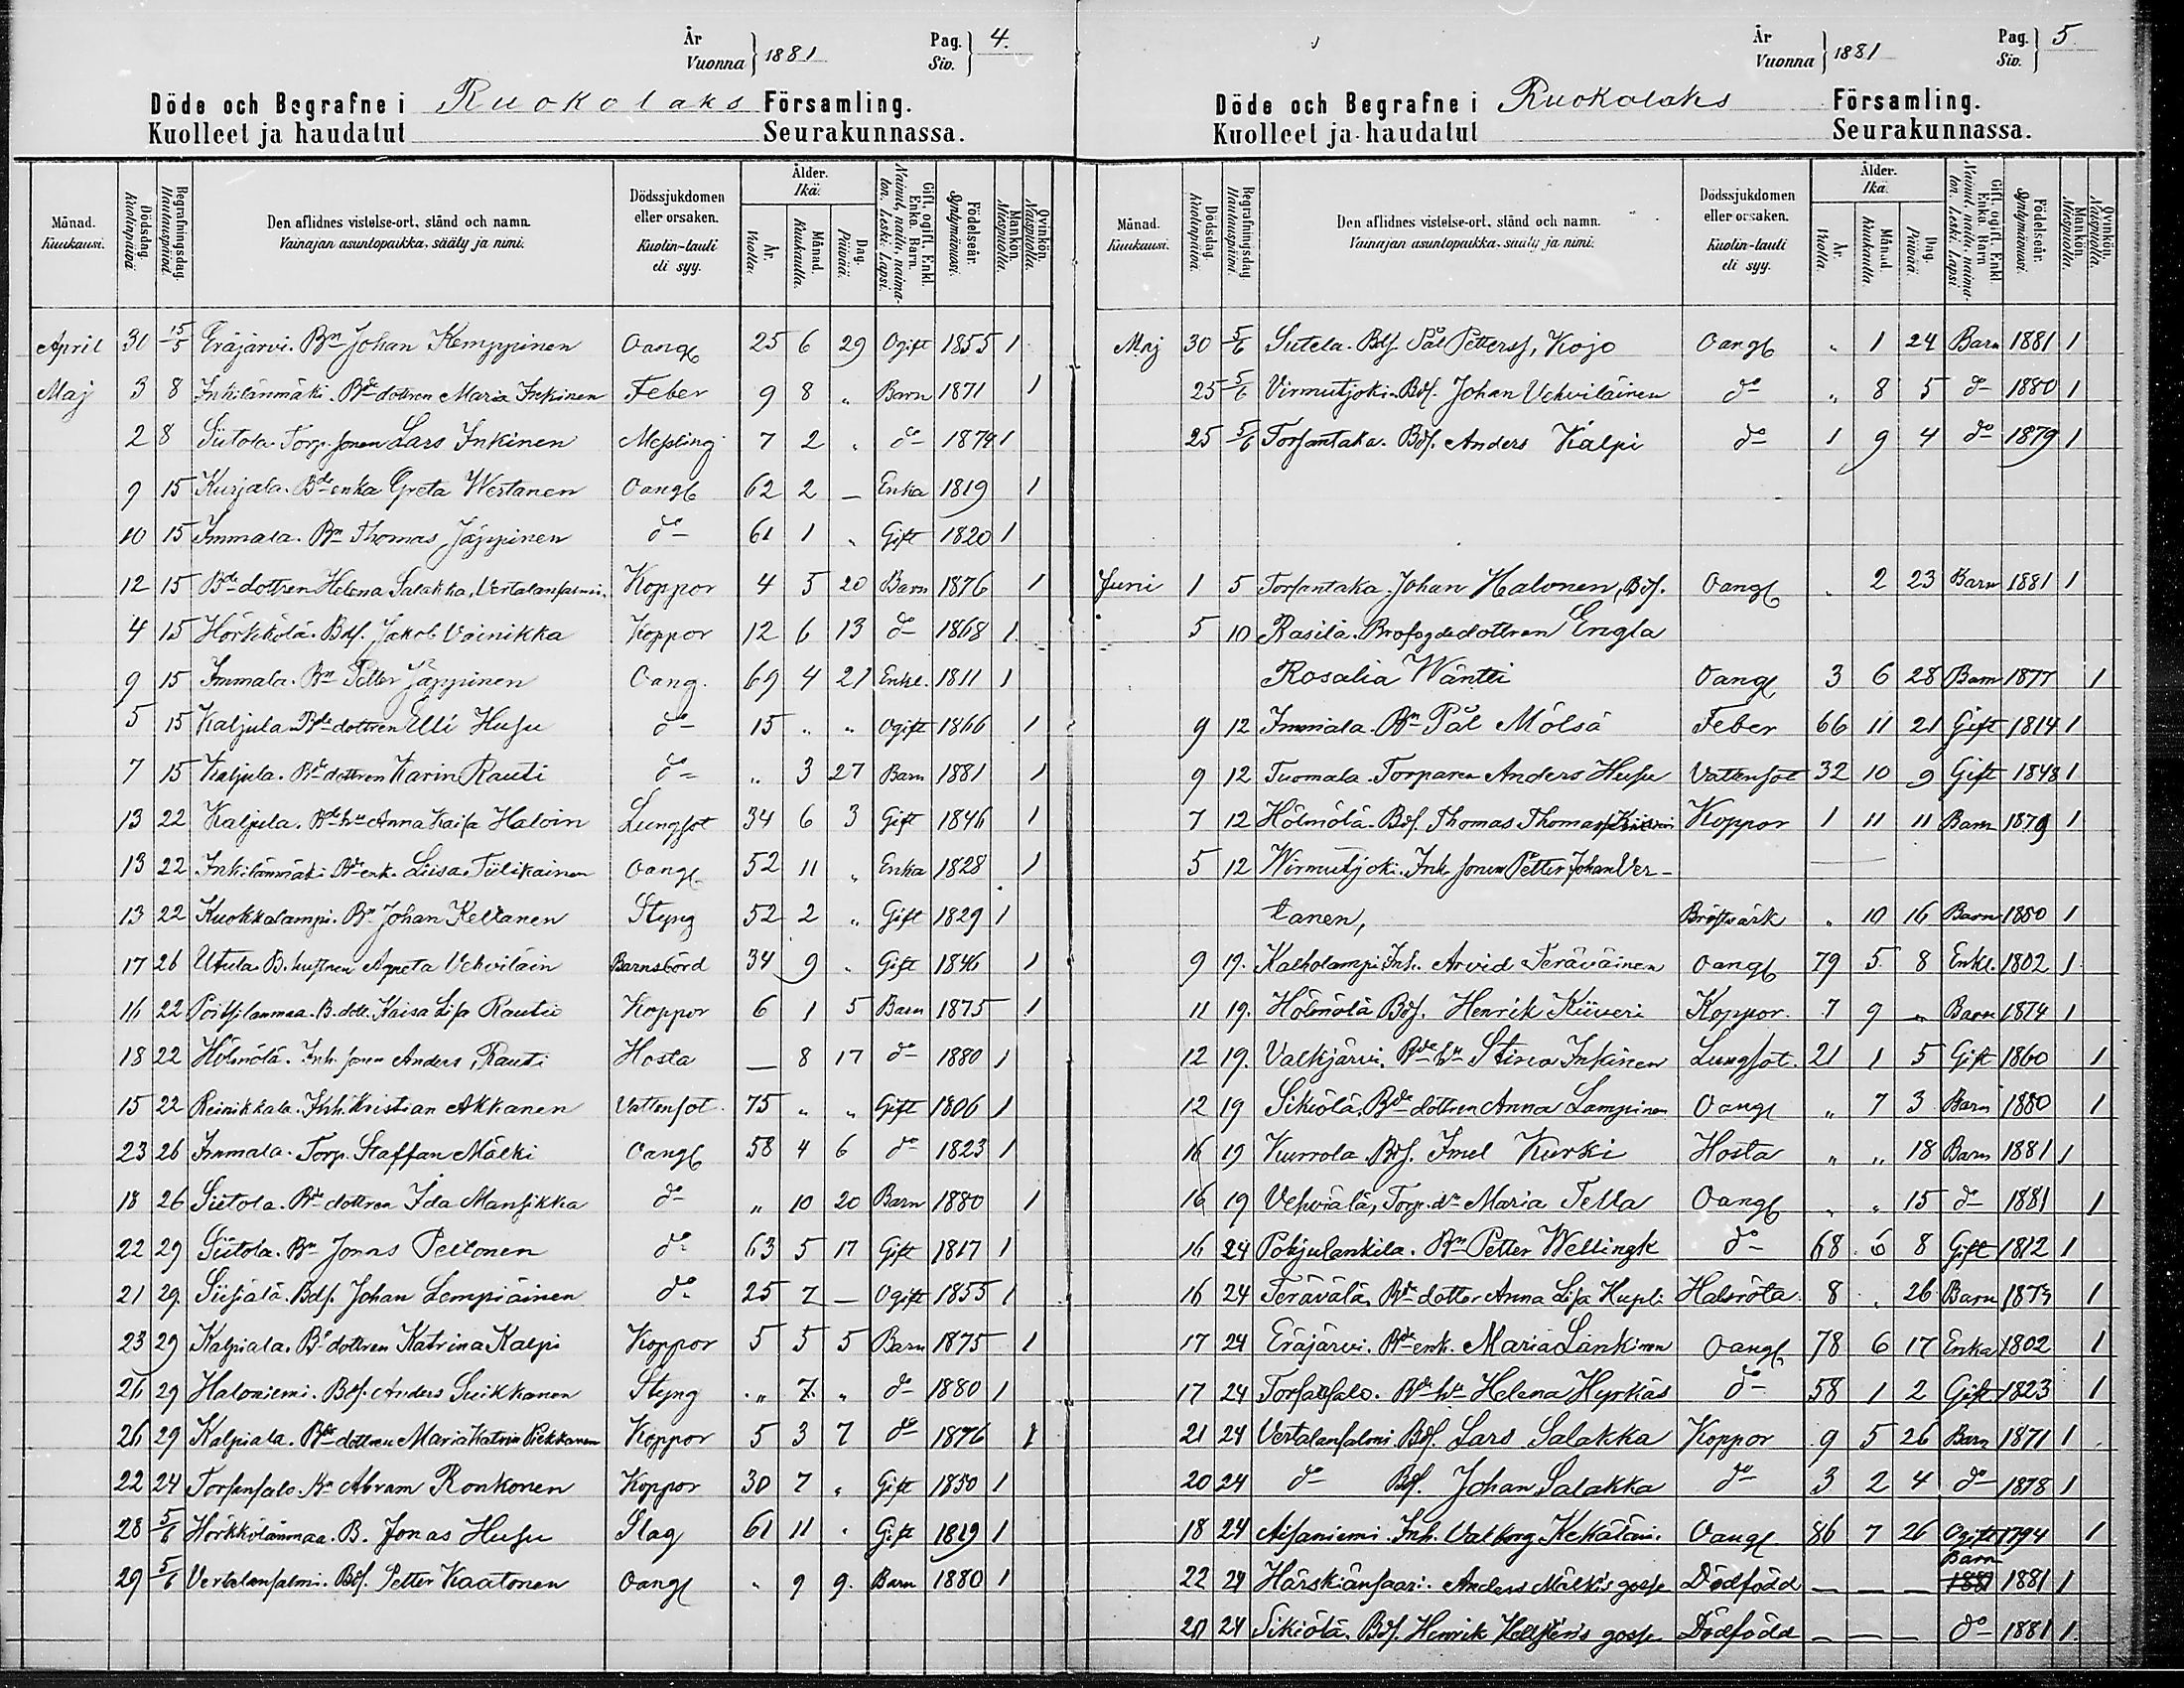 År
Vuonna } 1881
Pag.
Siv. } 4.
Döde och Begrafne i Ruokolaks Församling.
Kuolleet ja haudatut Seurakunnassa.
Månad. Kuukausi. Dödsdag. Kuolinpäivä. Begrafningsdag. Hautauspäivä. Den aflidnes vistelse-ort, stånd och namn. Vainajan asuntopaikka, sääty ja nimi. Dödssjukdomen eller orsaken. Kuolin-tauti eli syy. Ålder. Ikä. År. Vuotta. Månad. Kuukautta. Dag. Päivää. Gift, ogift, Enkl. Enka. Barn. Nainut, naitu, naimaton. Leski. Lapsi. Födelseår. Syntymävuosi. Mankön. Miespuolia. Qvinkön. Naispuolia.
April 31 15/5 Eräjärvi. Bn Johan Kemppinen Oangf 25 6 29 Ogift 1855 1
Maj 3 8 Inkilänmäki. Bde dottren Maria Inkinen Feber 9 8 " Barn 1871 1
2 8 Siitola Torp. sonen Lars Inkinen Messling 7 2 " do 1874 1
9 15 Kurjala. Bde enka Greta Wertanen Oangf 62 2 — Enka 1819 1
10 15 Immala. Bn Thomas Jäppinen do 61 1 " Gift 1820 1
12 15 Bde dottren Helena Salakka, Vertalansalmi. Koppor 4 5 20 Barn 1876 1
4 15 Hörkkölä. Bds. Jakob Väinikka Koppor 12 6 13 do 1868 1
9 15 Immala. Bn Petter Jäppinen Oang. 69 4 21 Enkl. 1811 1
5 15 Kaljula Bde dottren Elli Husu do 15 " " Ogift 1866 1
7 15 Kaljula. Bde dottren Karin Rauti do " 3 27 Barn 1881 1
13 22 Kaljula. Bde hu Anna Kaisa Haloin Lungsot 34 6 3 Gift 1846 1
13 22 Inkilänmäki Bde enk. Liisa Tiilikainen Oangf 52 11 " Enka 1828 1
13 22 Kuokkalampi. Bn Johan Keltanen Styng 52 2 " Gift 1829 1
17 26 Utula B. hustren Agneta Vehviläin Barnsbörd 34 9 " Gift 1846 1
16 22 Poitsilanmaa. B. dott. Kaisa Lisa Rautio Koppor 6 1 5 Barn 1875 1
18 22 Hölmölä. Inh. sonen Anders Rauti Hosta — 8 17 do 1880 1
15 22 Reinikkala. Inh. Kristian Akkanen Vattensot 75 " " Gift 1806 1
23 26 Immala. Torp. Staffan Mälki Oangf 58 4 6 do 1823 1
18 26 Siitola. Bde dottren Ida Mansikka do " 10 20 Barn 1880 1
22 29 Siitola. Bn Jonas Peltonen do 63 5 17 Gift 1817 1
21 29. Siisiälä. Bds. Johan Lempiäinen do 25 7 — Ogift 1855 1
23 29 Kalpiala. Be dottren Katrina Kalpi Koppor 5 5 5 Barn 1875 1
26 29 Haloniemi. Bds. Anders Suikkanen Styng " 7 " do 1880 1
26 29 Kalpiala. Bde dottren Maria Katrin Piekkanen Koppor 5 3 7 do 1876 1
22 24 Torsansalo. Bn Abram Ronkonen Koppor 30 7 " Gift 1850 1
28 5/6 Hörkkölänmaa. B. Jonas Husu Slag 61 11 " Gift 1819 1
29 5/6 Vertalansalmi. Bds. Petter Kaatonen Oangf " 9 9. Barn 1880 1
År
Vuonna } 1881
Pag.
Siv. } 5.
Döde och Begrafne i Ruokolaks Församling.
Kuolleet ja haudatut Seurakunnassa.
Månad. Kuukausi. Dödsdag. Kuolinpäivä. Begrafningsdag. Hautauspäivä. Den aflidnes vistelse-ort, stånd och namn. Vainajan asuntopaikka, sääty ja nimi. Dödssjukdomen eller orsaken. Kuolin-tauti eli syy. Ålder. Ikä. År. Vuotta. Månad. Kuukautta. Dag. Päivää. Gift, ogift, Enkl. Enka. Barn. Nainut, naitu, naimaton. Leski. Lapsi. Födelseår. Syntymävuosi. Mankön. Miespuolia. Qvinkön. Naispuolia.
Maj 30 5/6 Sutela. Bds. Pål Petterss. Kojo Oangf " 1 24 Barn 1881 1
25 5/6 Virmutjoki. Bds. Johan Vehviläinen do " 8 5 do 1880 1
25 5/6 Torsantaka. Bds. Anders Kalpi do 1 9 4 do 1879 1
Juni 1 5 Torsantaka. Johan Halonen, Bds. Oangf " 2 23 Barn 1881 1
5 10 Rasila. Brofogdedottren Engla
Rosalia Wäntti Oangf 3 6 28 Barn 1877 1
9 12 Immala. Bn Pål Mölsä Feber 66 11 21 Gift 1814 1
9 12 Tuomala. Torparen Anders Husu Vattensot 32 10 9 Gift 1848 1
7 12 Hölmölä. Bds. Thomas Thomass. Koppor 1 11 11 Barn 1879 1
5 12 Wirmutjoki. Inh. sonen Petter Johan Ver-
tanen, Bröstvärk " 10 16 Barn 1880 1
9 19. Kalholampi Inh. Arvid Teräväinen Oangf 79 5 8 Enkl. 1802 1
11 19. Hölmölä Bds. Henrik Kiiveri Koppor. 7 9 " Barn 1874 1
12 19. Valkjärvi. Bde hu Stina Inkinen Lungsot. 21 1 5 Gift 1860 1
12 19 Sikiölä. Bde dottren Anna Lampinen Oangf " 7 3 Barn 1880 1
16 19 Kurrola. Bds. Imel Kurki Hosta " " 18 Barn 1881 1
16 19 Vehviälä, Torp. dr Maria Tella Oangf " " 15 do 1881 1
16 24 Pohjalankila. Bn Petter Wellingk do 68 6 8 Gift 1812 1
16 24 Terävälä, Bde dotter Anna Lisa Kupli Halsröta 8 " 26 Barn 1873 1
17 24 Eräjärvi. Bde enk. Maria Lankinen Oangf 78 6 17 Enka 1802 1
17 24 Torsansalo. Bde hu Helena Hyrkäs do 58 1 2 Gift 1823 1
21 24 Vertalansalmi Bds. Lars Salakka Koppor 9 5 26 Barn 1871 1
20 24 do Bds. Johan Salakka do 3 2 4 do 1878 1
18 24 Aisaniemi. Inh. Valborg Kekäläin. Oangf 86 7 26 Ogift 1794 1
22 24 Härskiänsaari. Anders Mälkis gosse Dödfödd — — — Barn 1881 1881 1
20 24 Sikiölä. Bds. Henrik gosse Dödfödd — — — do 1881 1